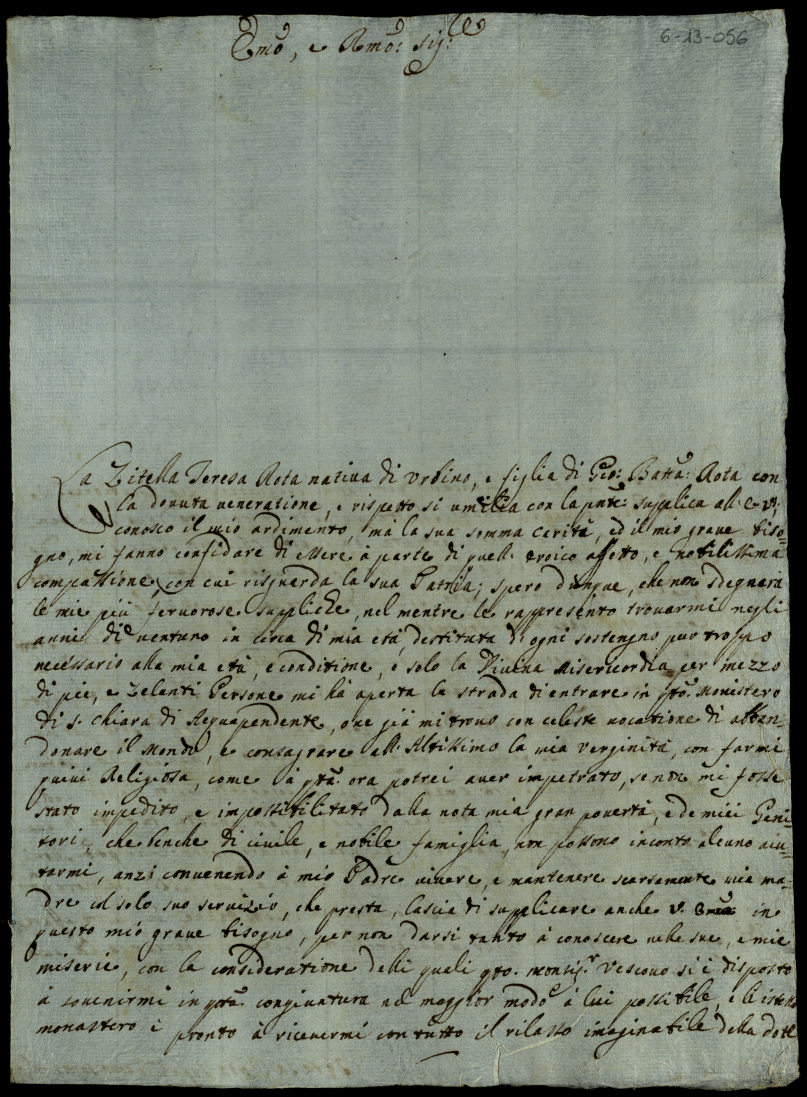 6-13-056
Emo, e Rmo: Sig:re
La Zitella Teresa Rota nativa di Urbino, e figlia di Gio: Batta: Rota con
la dovuta veneratione, e rispetto si umilia con la pnte: supplica all: E. V.
conosco il mio ardimento, mà la sua somma carità, ed il mio grave biso=
gno, mi fanno confidare di essere à parte di quell: eroico affetto, e nobilissima
compassione, con cui risguarda la sua Patria; spero dunque, che non sdegnarà
le mie più fervorose suppliche, nel mentre le rappresento trovarmi negli
anni di ventuno in circa di mia età, destituta di ogni sostengno pur troppo
necessario alla mia età, e conditione, e solo la Divina Misericordia per mezzo
di pie, e zelanti Persone mi hà aperta la strada di entrare in qto: Monistero
di S. Chiara di Acquapendente, ove già mi trovo con celeste vocatione di abban=
donare il Mondo, e consagrare all: Altissimo la mia verginità, con farmi
quivi Religiosa, come à qta: ora potrei aver impetrato, se non mi fosse
stato impedito, e impossibilitato dalla nota mia gran povertà, e de miei Geni=
tori, che benche di civile, e nobile famiglia, non possono in conto alcuno aiu=
tarmi, anzi convenendo à mio Padre vivere, e mantenere scarsamente mia ma=
dre col solo suo servizio, che presta, lascia di supplicare anche V. Emza in
questo mio grave bisogno, per non darsi tanto à conoscere nelle sue, e mie
miserie, con la consideratione delli quali qto. Monsig:r Vescovo si è disposto
à sovenirmi in qta: congiuntura nel maggior modo à lui possibile, e lo istesso
monastero è pronto à ricevermi con tutto il rilasso imaginabile della dote